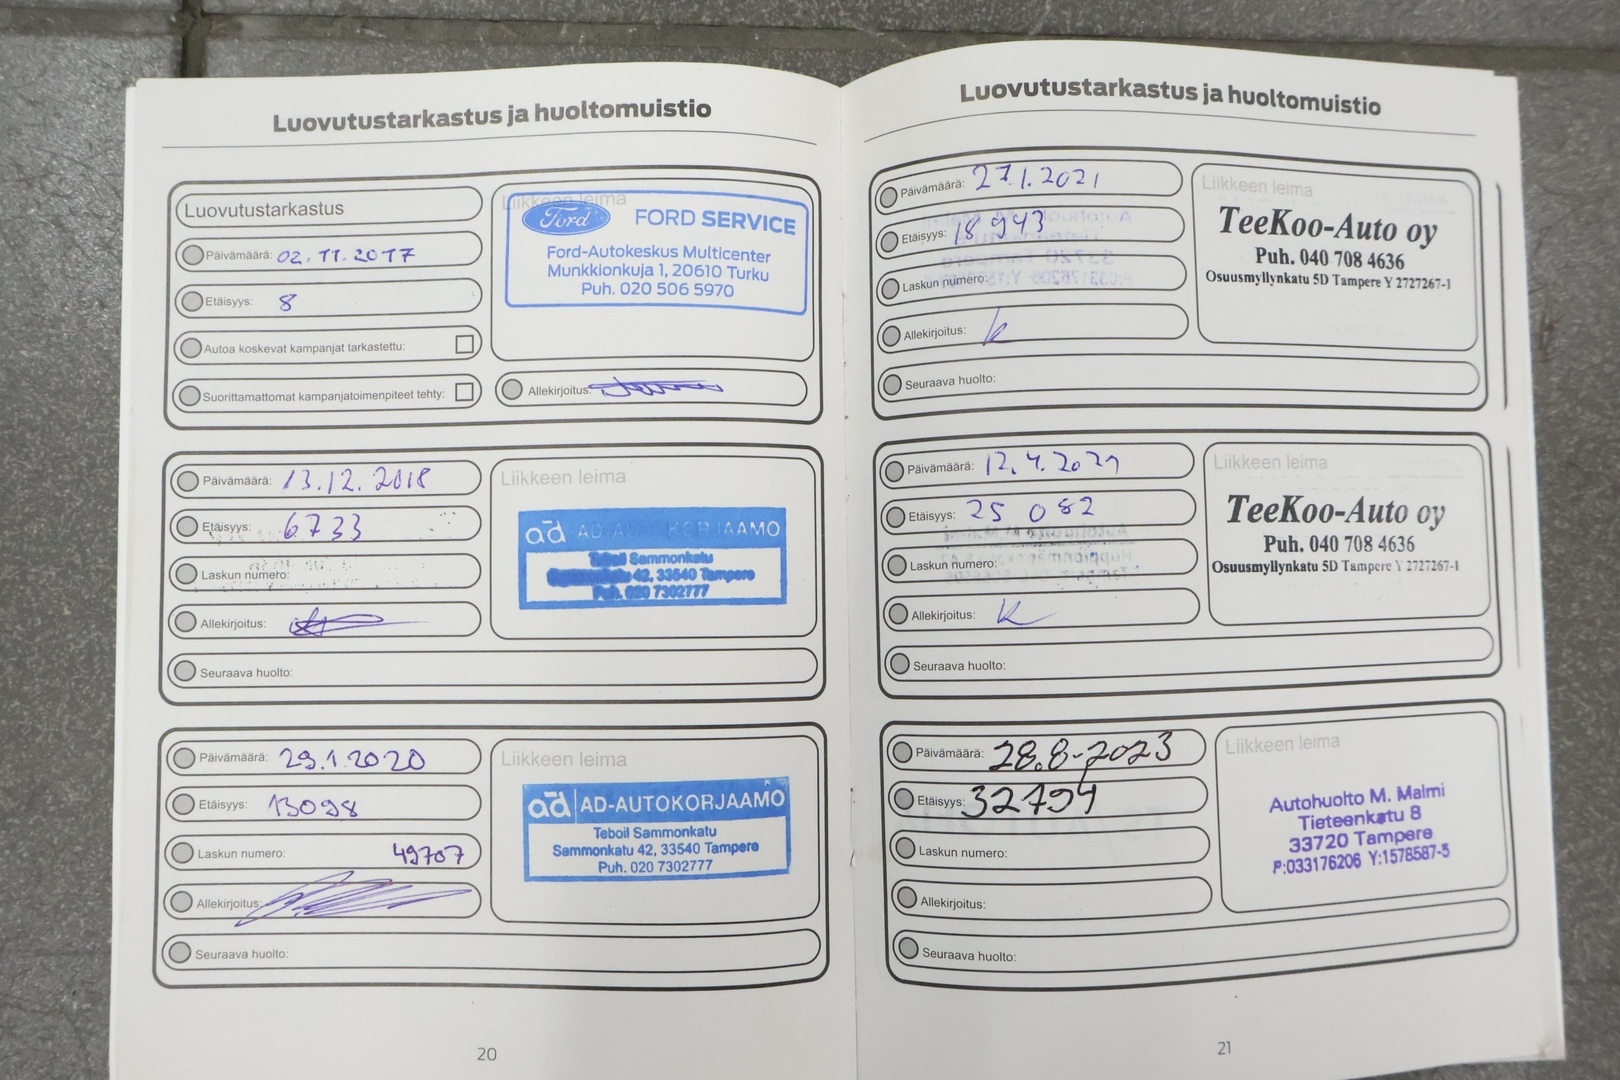 Luovutustarkastus ja huoltomuistio
Luovutustarkastus
Päivämäärä: 02.11.2017
Etäisyys: 8
Autoa koskevat kampanjat tarkastettu:
Suorittamattomat kampanjatoimenpiteet tehty:
Liikkeen leima
Ford FORD SERVICE
Ford-Autokeskus Multicenter
Munkkionkuja 1, 20610 Turku
Puh. 020 506 5970
Allekirjoitus:
Päivämäärä: 13.12.2018
Etäisyys: 6733
Laskun numero:
Allekirjoitus:
Seuraava huolto:
Liikkeen leima
ad AD-AUTOKORJAAMO
Teboil Sammonkatu
Sammonkatu 42, 33540 Tampere
Puh. 020 7302777
Päivämäärä: 29.1.2020
Etäisyys: 13098
Laskun numero: 49707
Allekirjoitus:
Seuraava huolto:
Liikkeen leima
ad AD-AUTOKORJAAMO
Teboil Sammonkatu
Sammonkatu 42, 33540 Tampere
Puh. 020 7302777
20
Luovutustarkastus ja huoltomuistio
Päivämäärä: 27.1.2021
Etäisyys: 18 943
Laskun numero:
Allekirjoitus: K
Seuraava huolto:
Liikkeen leima
TeeKoo-Auto oy
Puh. 040 708 4636
Osuusmyllynkatu 5D Tampere Y 2727267-1
Päivämäärä: 12.4.2021
Etäisyys: 25 082
Laskun numero:
Allekirjoitus: K
Seuraava huolto:
Liikkeen leima
TeeKoo-Auto oy
Puh. 040 708 4636
Osuusmyllynkatu 5D Tampere Y 2727267-1
Päivämäärä: 28.8-2023
Etäisyys: 32794
Laskun numero:
Allekirjoitus:
Seuraava huolto:
Liikkeen leima
Autohuolto M. Malmi
Tieteenkatu 8
33720 Tampere
P:033176206 Y:1578587-5
21